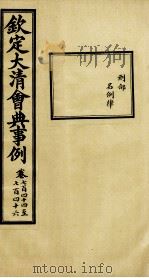 刑部
名例律
欽定大清會典事例
卷七百四十四至
七百四十六